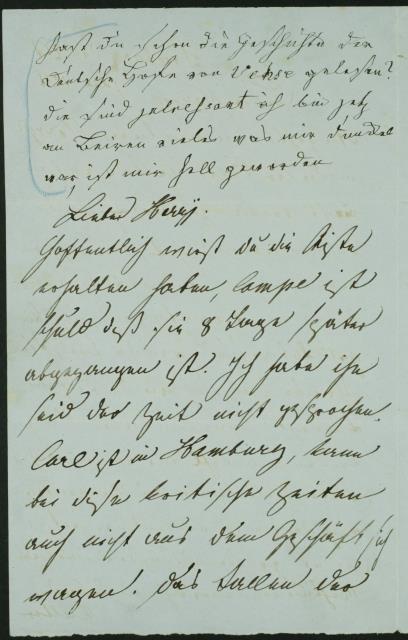 Hast du schon die Geschichte der
Deutsche Hofe von Vehse gelesen?
die sind interessant ich bin jetz
am Beiren vieles was mir dunkel
war, ist mir hell geworden
Lieber Herry.
Hoffentlich wirst du die Kiste
erhalten haben, Campe ist
schuld daß sie 8 Tage später
abgegangen ist. Ich habe ihn
seid der Zeit nicht gesprochen.
Carl ist in Hamburg, kann
bei diese kritische Zeiten
auch nicht aus dem Geschäft sich
wagen! das Fallen der